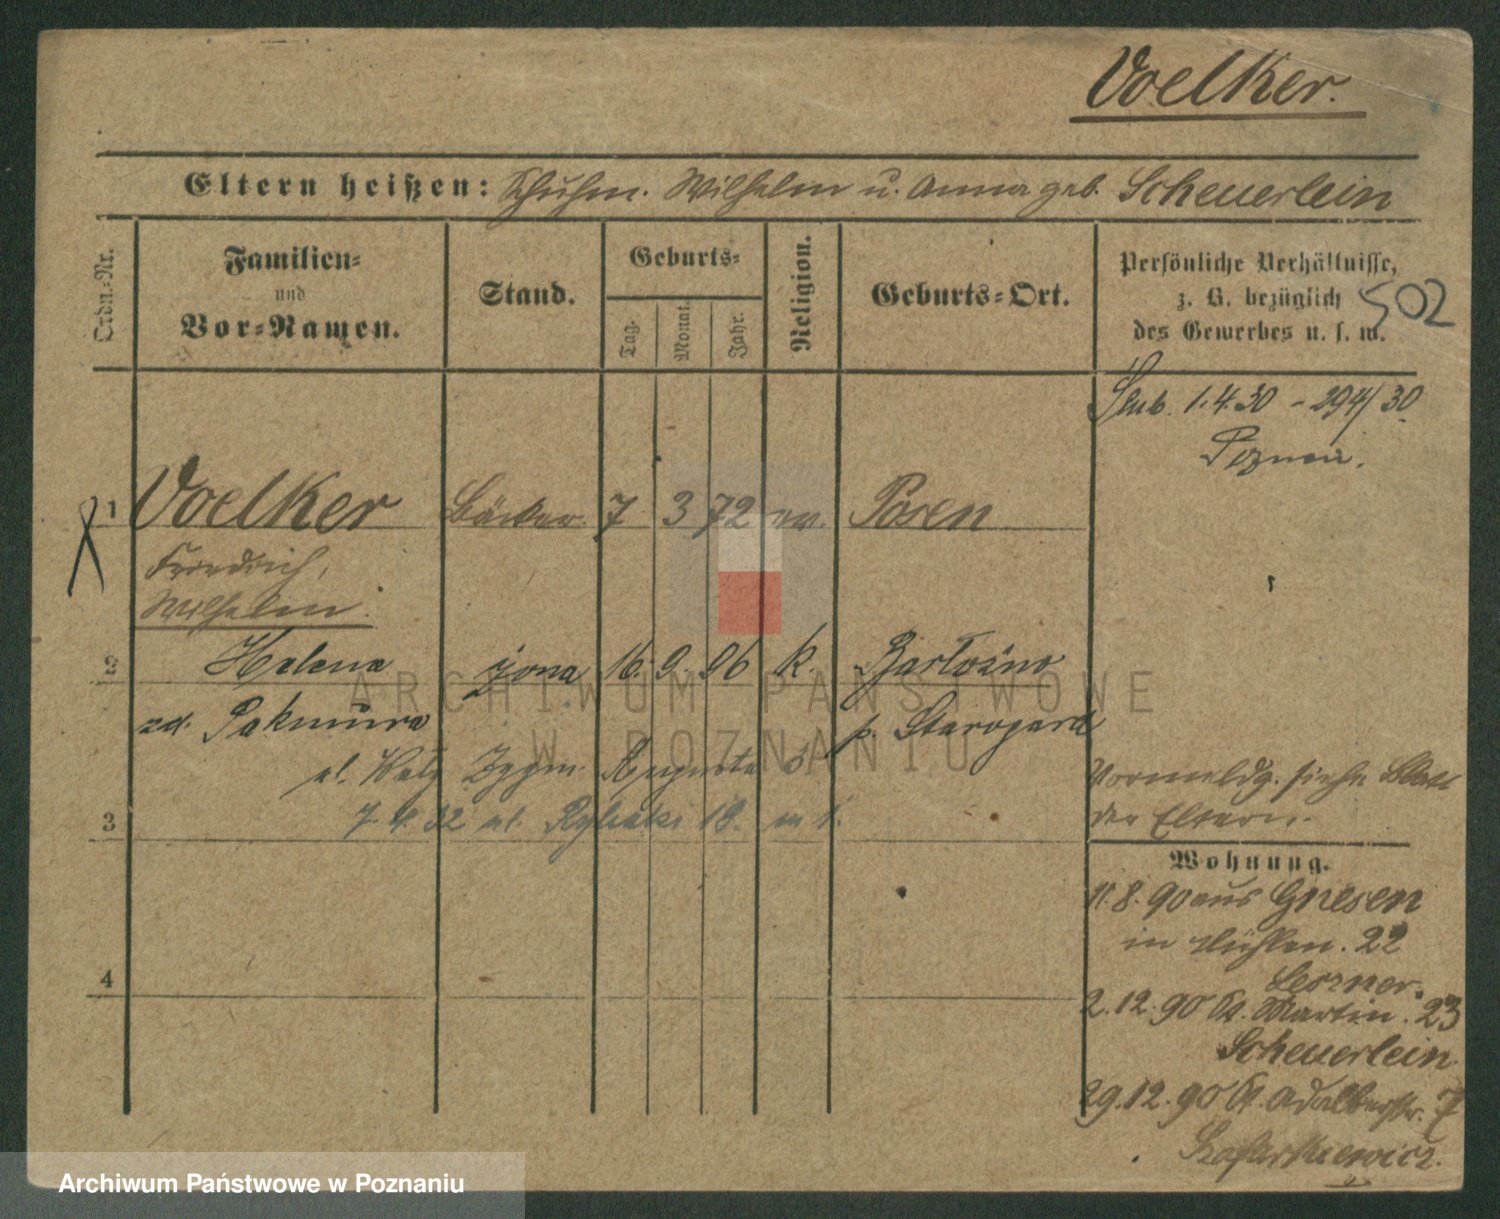 Voelker.
Eltern heißen: Schuhm. Wilhelm u. Anna geb. Scheuerlein
Ordn.-Nr.
Familien-
und
Vor-Namen.
Stand.
Geburts-
Tag.
Monat.
Jahr.
Religion.
Geburts-Ort.
Persönliche Verhältnisse,
z. B. bezüglich
des Gewerbes u. s. w.
502
Ślub. 1.4.30 - 294/30
Poznań.
1 Voelker Bäcker 7 3 72 ev. Posen
Friedrich,
Wilhelm.
2 Helena żona 16. 9. 06 k. Bartożno
zd. Pakmura p. Starogard
ul. Zygm. Augusta 5
3 7 4. 32 ul. Rybaki 19. m 1.
Vormeldg. siehe Blatt
der Eltern.
Wohnung.
11.8.90 aus Gnesen
in Mühlen. 22
Lerzner.
2.12.90 St. Martin. 23
Scheuerlein
29.12.90 St. Adalbertstr. 7
Szafarkiewicz.
4
ARCHIWUM PAŃSTWOWE
W POZNANIU
Archiwum Państwowe w Poznaniu